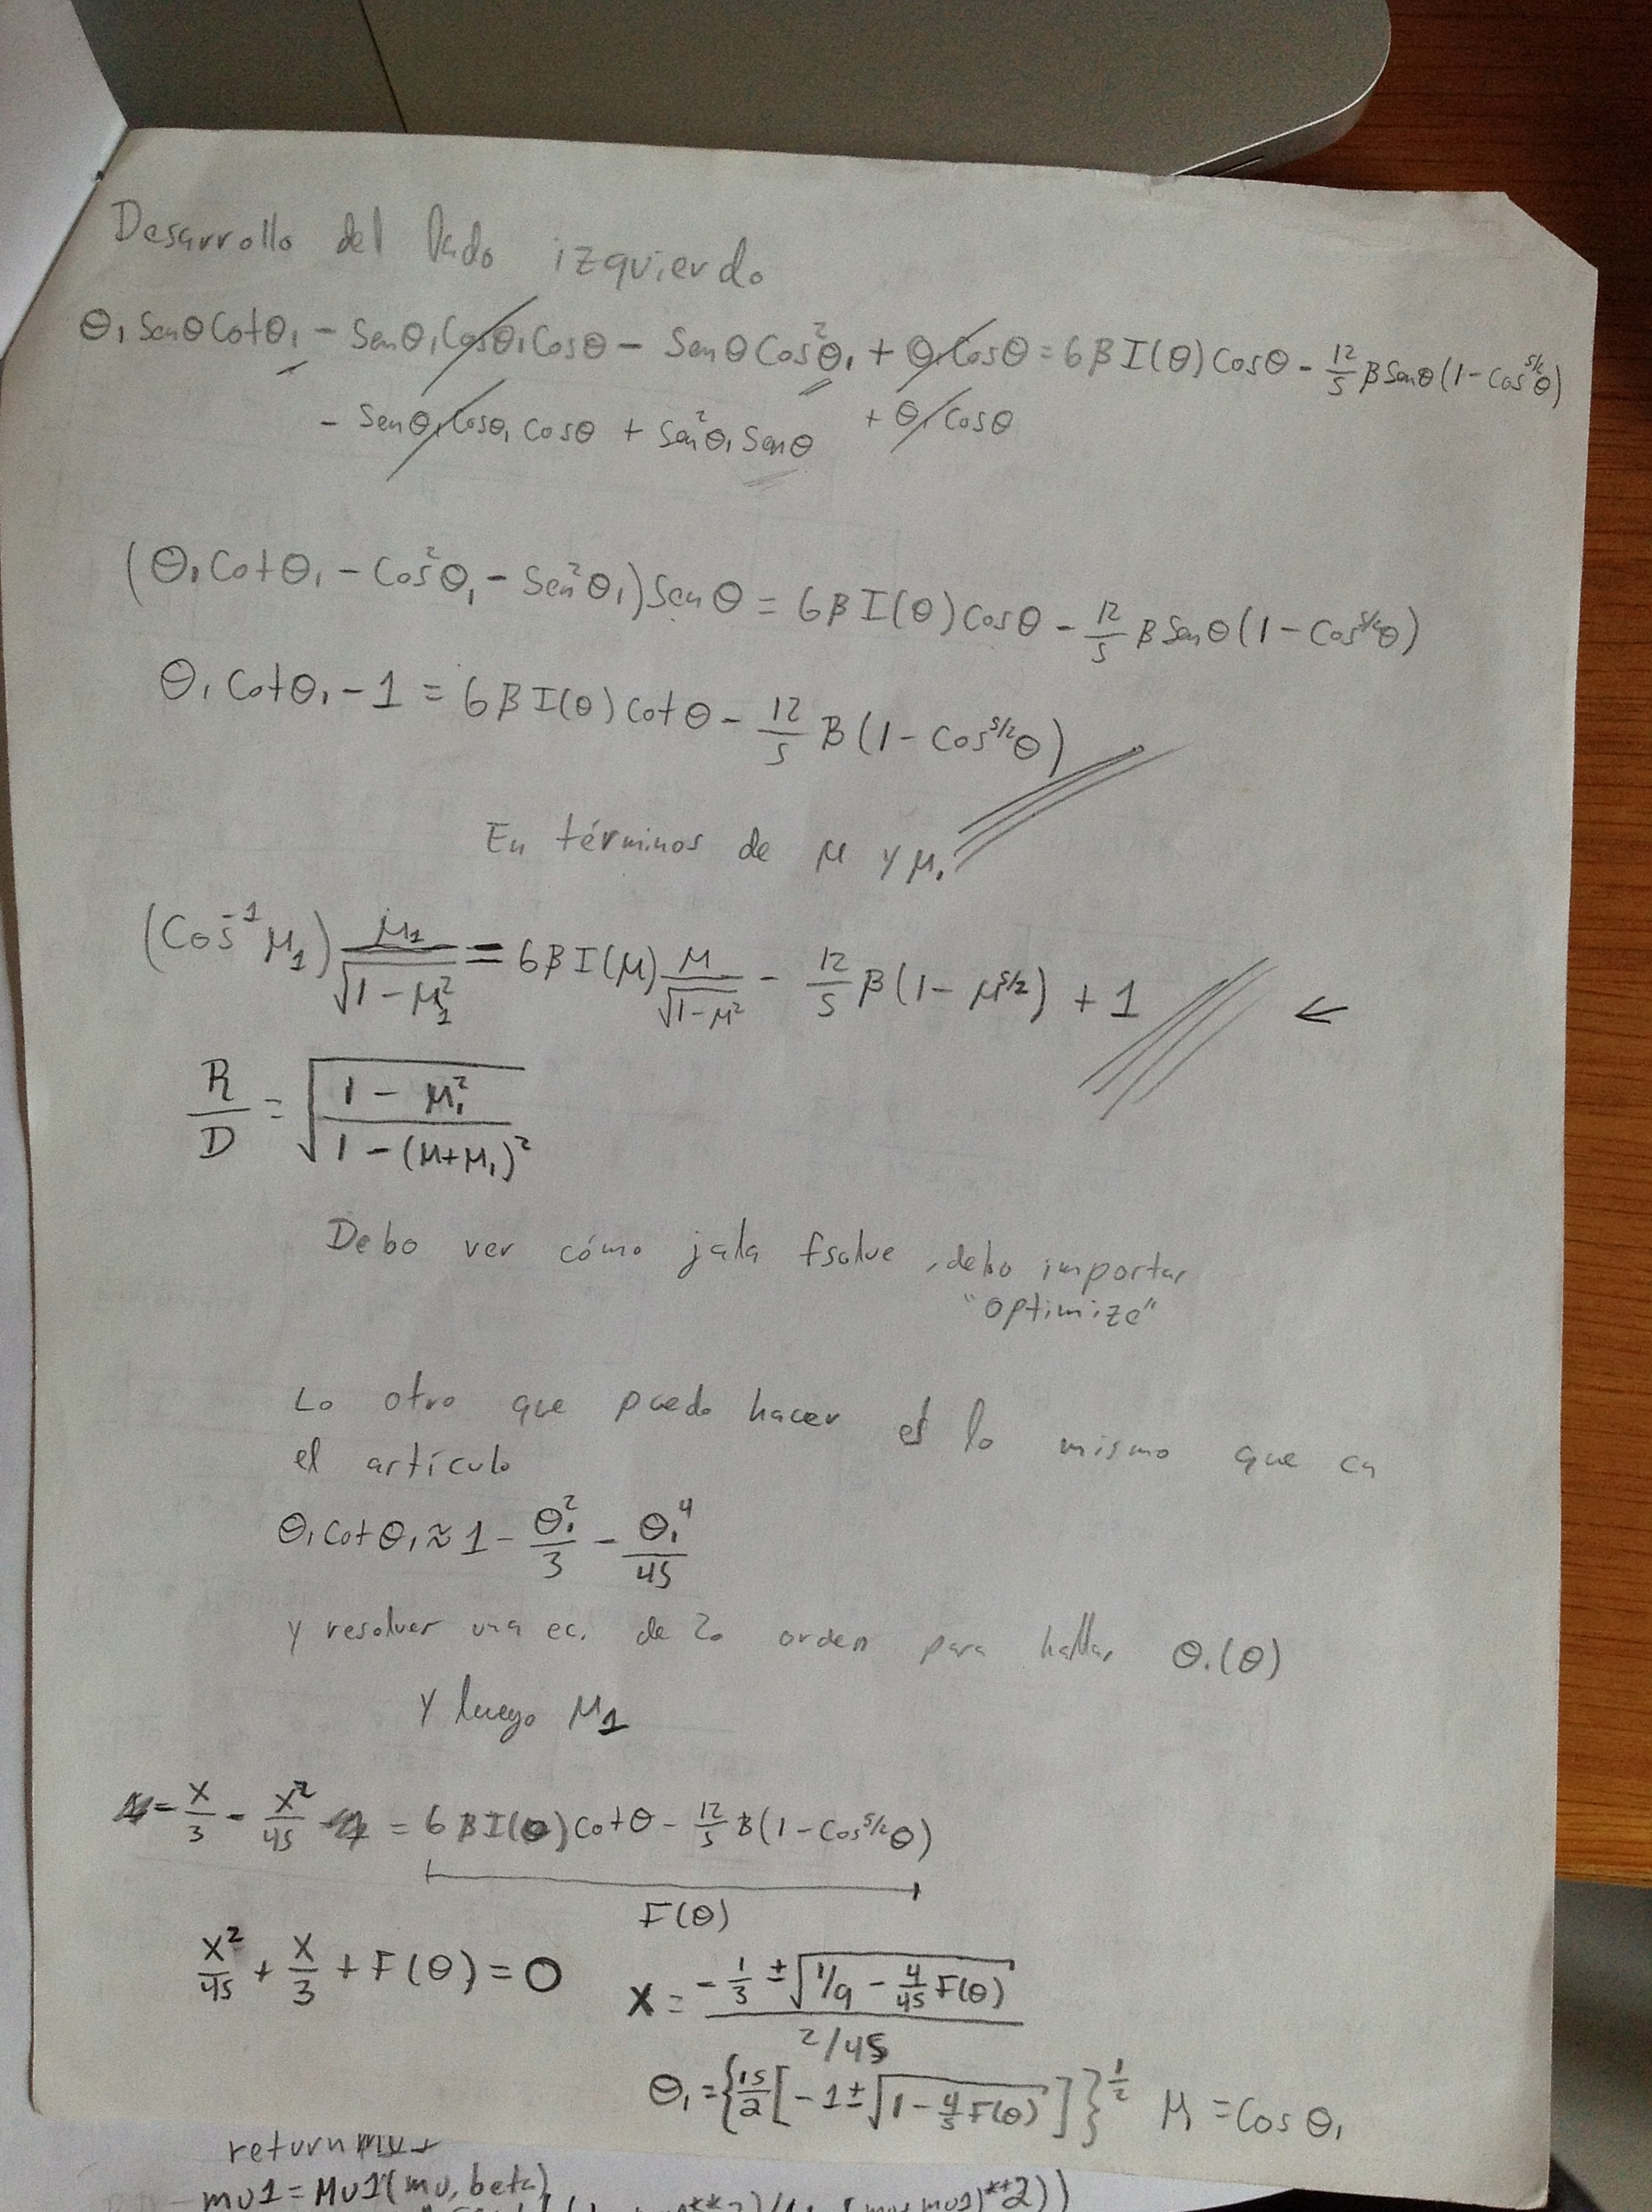 Desarrollo del lado izquierdo
θ₁ Senθ Cotθ₁ - Senθ₁ Cosθ₁ Cosθ - Senθ Cos²θ₁ + θ₁ Cosθ = 6βI(θ) Cosθ - 12/5 β Senθ (1 - Cos^5/2 θ)
- Senθ₁ Cosθ₁ Cosθ + Sen²θ₁ Senθ + θ₁ Cosθ
(θ₁ Cotθ₁ - Cos²θ₁ - Sen²θ₁) Senθ = 6βI(θ) Cosθ - 12/5 β Senθ (1 - Cos^5/2 θ)
θ₁ Cotθ₁ - 1 = 6βI(θ) Cotθ - 12/5 β (1 - Cos^5/2 θ)
En términos de μ y μ₁
(Cos⁻¹ μ₁) μ₁/√(1-μ₁²) = 6βI(μ) μ/√(1-μ²) - 12/5 β (1 - μ^5/2) + 1 ←
R/D = √((1 - μ₁²)/(1 - (μ+μ₁)²))
Debo ver cómo jala fsolve, debo importar
"optimize"
Lo otro que puedo hacer es lo mismo que en
el artículo
θ₁ Cotθ₁ ≈ 1 - θ₁²/3 - θ₁⁴/45
y resolver una ec. de 2o orden para hallar θ₁(θ)
Y luego μ₁
- x/3 - x²/45 = 6βI(θ) Cotθ - 12/5 β (1 - Cos^5/2 θ)
F(θ)
x²/45 + x/3 + F(θ) = 0 x = (-1/3 ± √(1/9 - 4/45 F(θ)))/(2/45)
θ₁ = {15/2 [-1 ± √(1 - 4/5 F(θ))]}^1/2 μ = Cos θ₁
return
mu1 = Mu1(mu, beta)